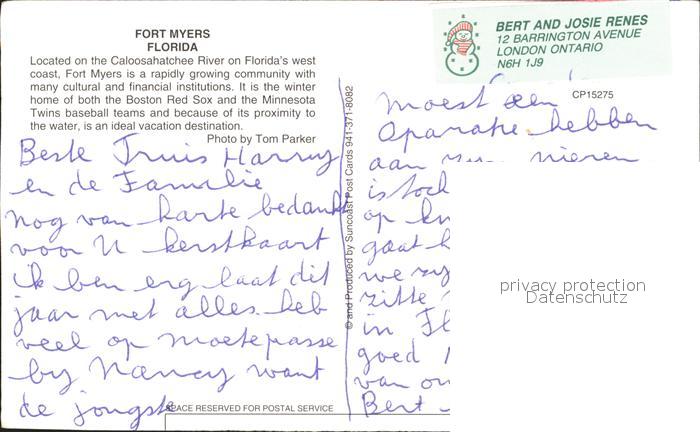 FORT MYERS
FLORIDA
Located on the Caloosahatchee River on Florida's west
coast, Fort Myers is a rapidly growing community with
many cultural and financial institutions. It is the winter
home of both the Boston Red Sox and the Minnesota
Twins baseball teams and because of its proximity to
the water, is an ideal vacation destination.
Photo by Tom Parker
Beste Truis Harry
en de Familie
nog van harte bedankt
voor U kerstkaart
ik ben erg laat dit
jaar met alles. heb
veel op moetepasse
by Nancy want
de jongste
SPACE RESERVED FOR POSTAL SERVICE
© and Produced by Suncoast Post Cards 941-371-8082
BERT AND JOSIE RENES
12 BARRINGTON AVENUE
LONDON ONTARIO
N6H 1J9
CP15275
moest een
Oparatie hebben
aan nieren
is toch
op
gaat
we
zitte
in Fl
goed
van
Bert
privacy protection
Datenschutz